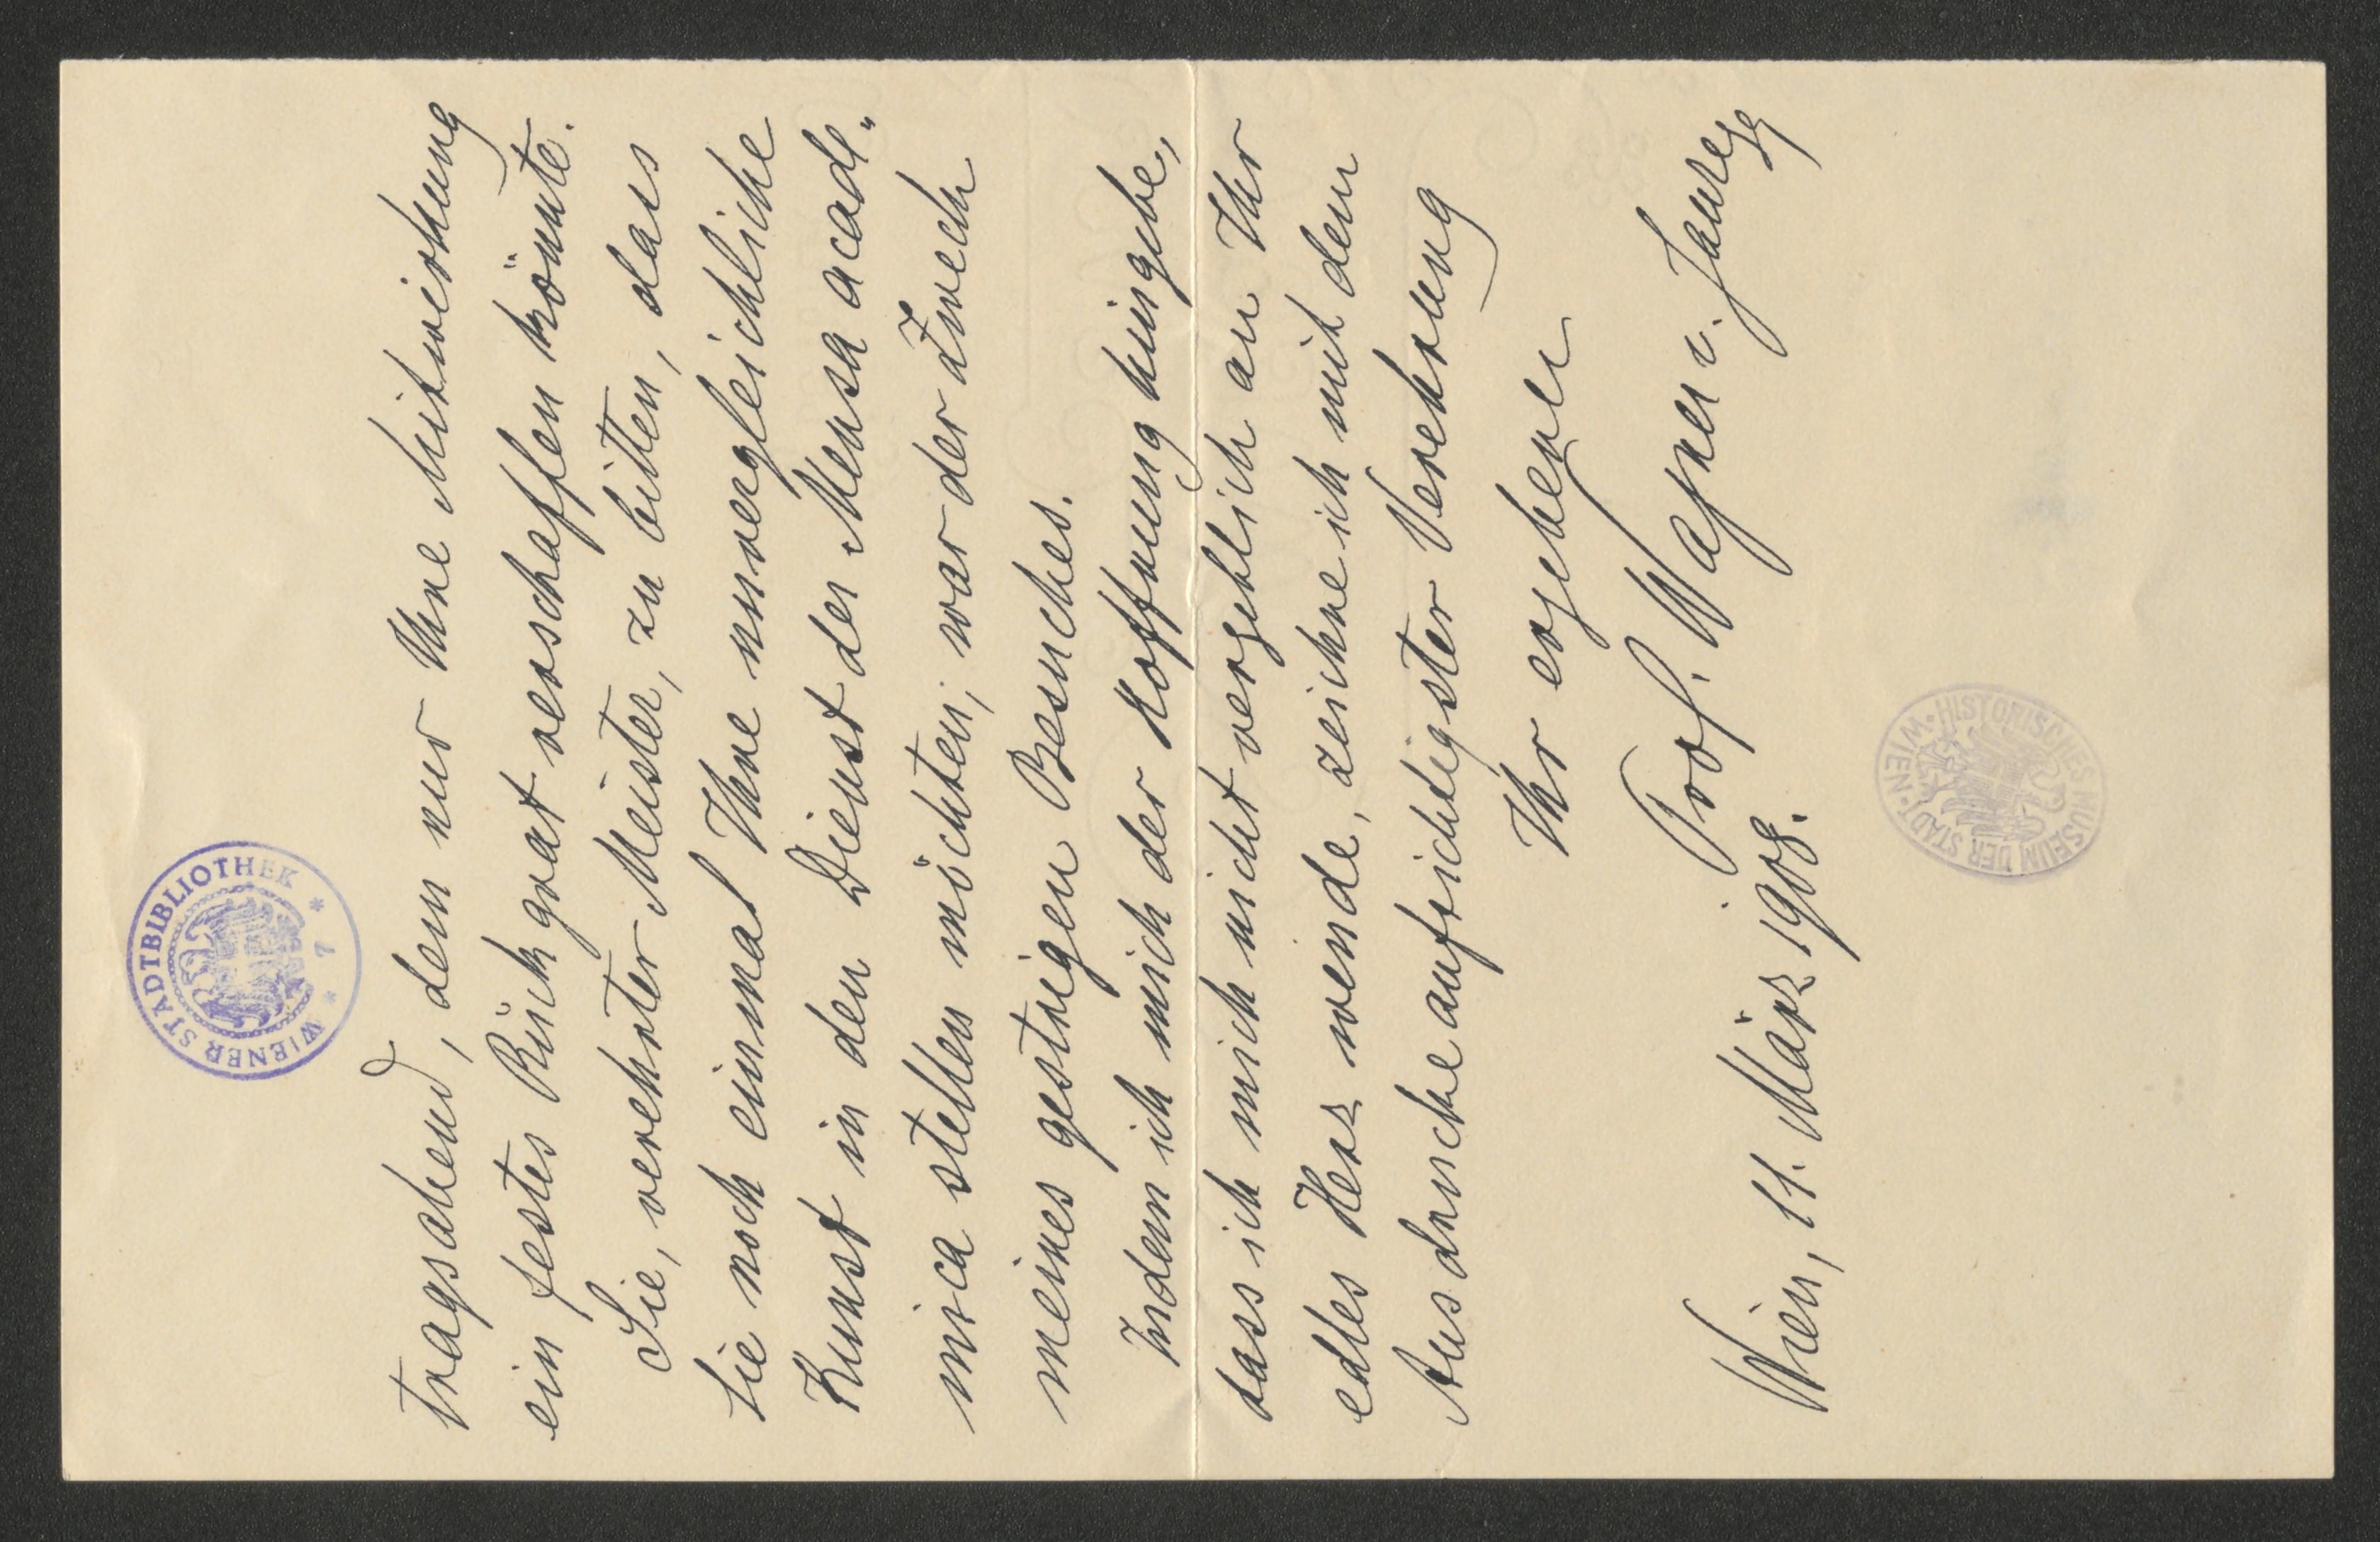 WIENER STADTBIBLIOTHEK * 7 *
tragsabend, dem nur Ihre Mitwirkung
ein festes Rückgrat verschaffen könnte.
Sie, verehrter Meister, zu bitten, dass
Sie noch einmal Ihre unvergleichliche
Kunst in den Dienst der Mensa acade-
mica stellen möchten, war der Zweck
meines gestrigen Besuches.
Indem ich mich der Hoffnung hingebe,
dass ich mich nicht vergeblich an Ihr
edles Herz wende, zeichne ich mit dem
Ausdrucke aufrichtigster Verehrung
Ihr ergebener
Prof. Wagner v. Jauregg
Wien, 11. März 1908.
HISTORISCHES MUSEUM DER STADT WIEN